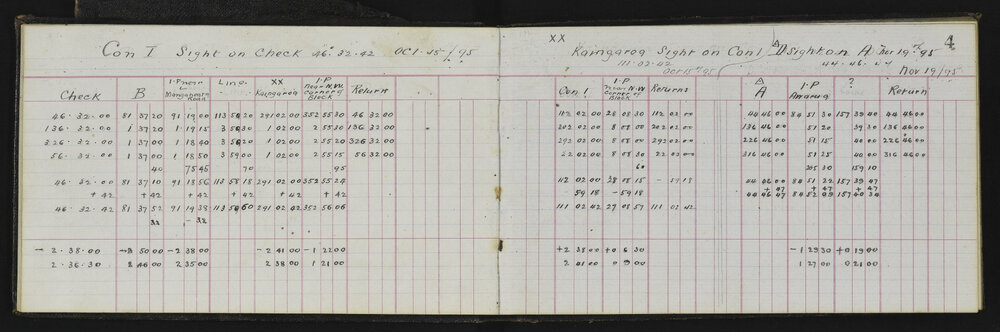 Con I Sight on Check 46.32.42 Oct.15/95
Check B I.P near Mangonara Road Line XX Kaingaroa I.P Near N.W. Corner of Block Returns
46.32.00 81 37 20 91 19 00 113 58 20 291 02 00 352 55 30 46 32 00
136.32.00 1 37 30 1 19 15 3 58 30 1 02 00 2 55 20 136 32 00
326.32.00 1 37 00 1 18 40 3 58 20 1 02 00 2 55 20 326 32 00
56.32.00 1 37 00 1 18 50 3 59 00 1 02 00 2 55 15 56 32 00
40 75 45 70 95
46.32.00 81 37 10 91 18 56 113 58 18 291 02 00 352 55 24
+42 +42 +42 +42 +42 +42
46.32.42 81 37 52 91 19 38 291 02 42 352 56 06
32 -32
-2.38.00 50 00 -2 38 00 -2 41 00 -1 22 00
2.36.30 2 46 00 2 35 00 2 38 00 1 21 00
XX Kaingaroa Sight on Con I
111.02.42
Oct 15th 95
A Sight on A Nov 19th 95
44.46.47
Nov 19/95
4
Con I I.P near N.W Corner of Block Returns A I.P Awarua ? Return
112 02 00 28 08 30 112 02 00 44 46 00 84 51 30 157 39 40 44 46 00
202 02 00 8 08 00 202 02 00 136 46 00 51 20 39 30 136 46 00
292 02 00 8 08 00 292 02 00 226 46 00 51 15 40 00 226 46 00
22 02 04 8 08 30 22 02 00 316 46 00 51 25 40 00 316 46 00
60 205 30 159 10
112 02 00 28 08 15 -59 18 44 46 00 84 51 22 157 39 47
-59 18 -59 18 +47 +47 +47
44 46 47 84 52 09 157 40 34
111 02 42 27 08 57 111 02 42
+2 38 00 +0 6 30 -1 29 30 +0 19 00
2 41 00 0 9 00 1 27 00 0 21 00